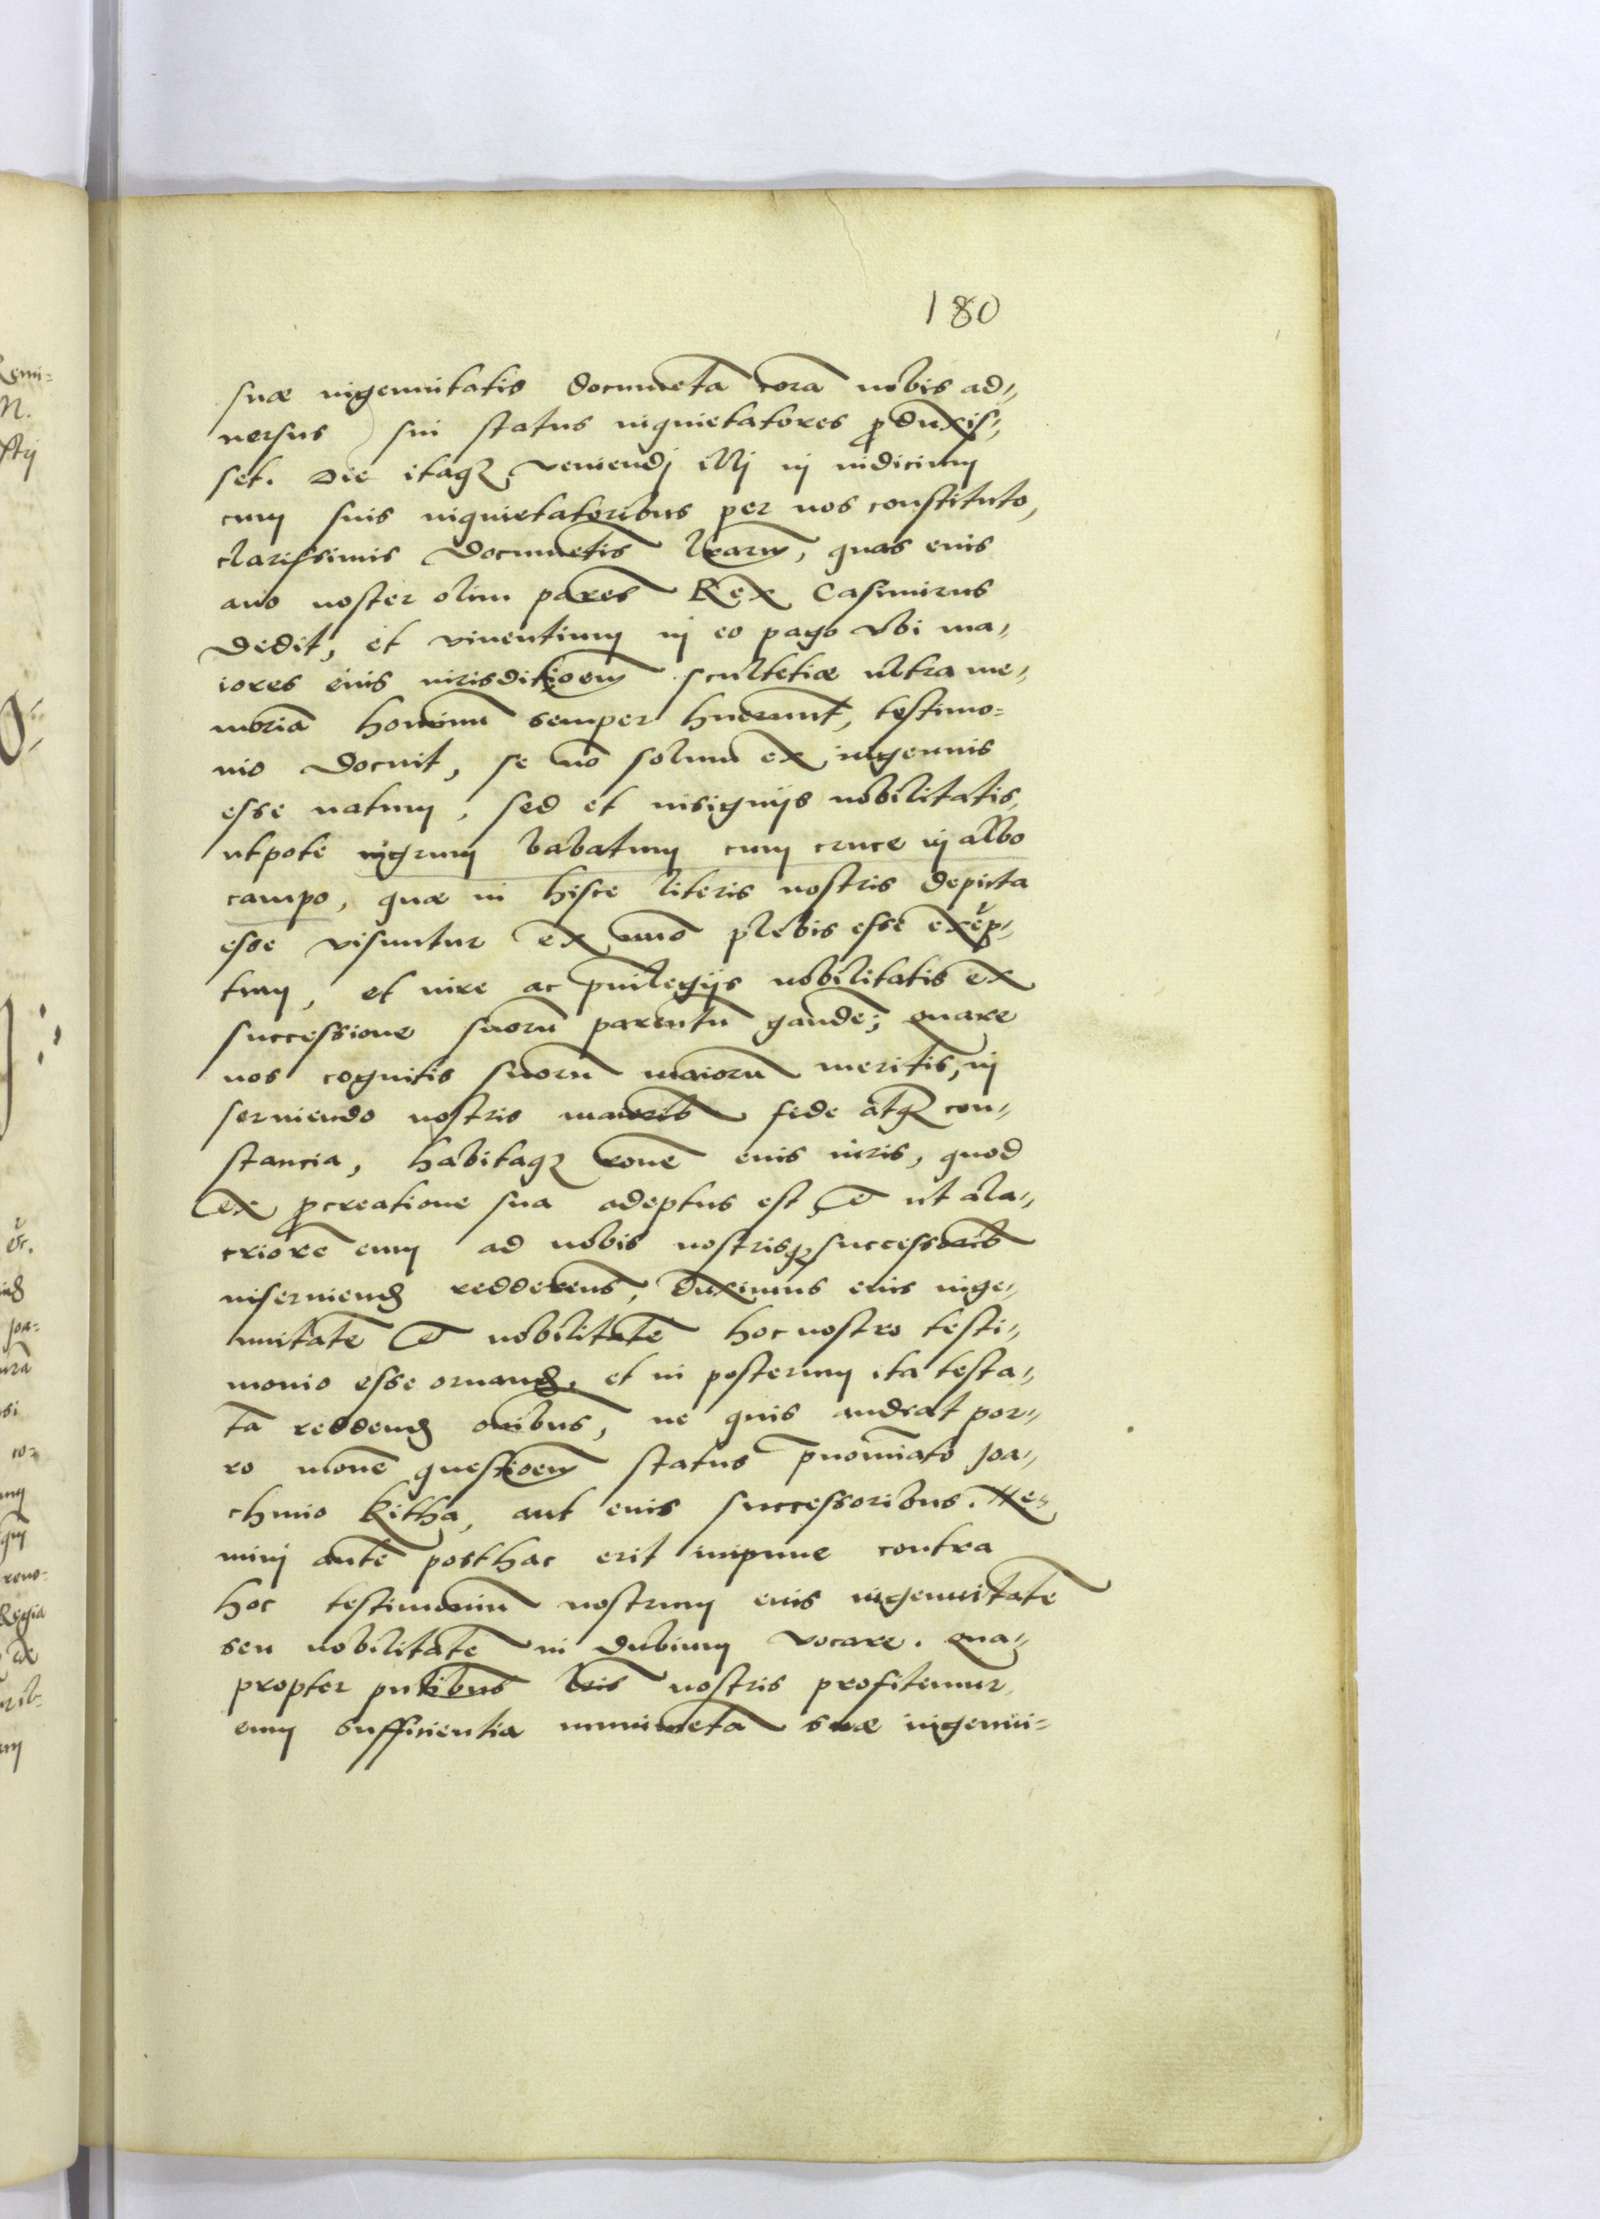 180
suæ ingenuitatis documēta corā nobis ad-
uersus sui status inquietatores ꝓduxis-
set. Die itaqꝫ veniendj illj in iudicium
cum suis inquietatoribus per nos constituto,
clarissimis documētis l̅rarum, quas euis
auo noster olim pares Rex Casimirus
dedit, et viuentium in eo pago vbi ma-
iores euis iurisditioēm scultetiæ ultra me-
moriā hominū semper huerunt, testimo-
nio docuit, se nō solum ex ingenuis
esse natum, sed et insignijs nobilitatis,
utpote nigrum babatum cum cruce in albo
campo, quæ in hisce literis nostris depicta
esse visuntur ex uno plebis esse exēp-
tum, et iure ac p̄uilegijs nobilitatis ex
successione suorū parentū gaudē; quare
nos cognitis suorū maiorū meritis, in
seruiendo nostris maiorib fide atqꝫ con-
stancia, habitaqꝫ rōne euis iuris, quod
ex ꝓcreatione sua adeptus est et ut ala-
criorē eum ad nobis nostrisqꝫ successorib
inseruiend redderem̄s, duximus euis inge-
nuitatē et nobilitatē hoc nostro testi-
monio esse ornand, et in posterum ita testa-
tā reddend oībus, ne quis audeat por-
ro mouē questioēm status p̄nomiato Joa-
chimo Kitha, aut euis successoribus. Ne-
minj autē posthac erit impune contra
hoc testimoniū nostrum euis ingenuitatē
seu nobilitatē in dubium vocare. Qua-
propter pn̄tibus l̅ris nostris profitemur
eum sufficientia munimēta suæ ingenui-